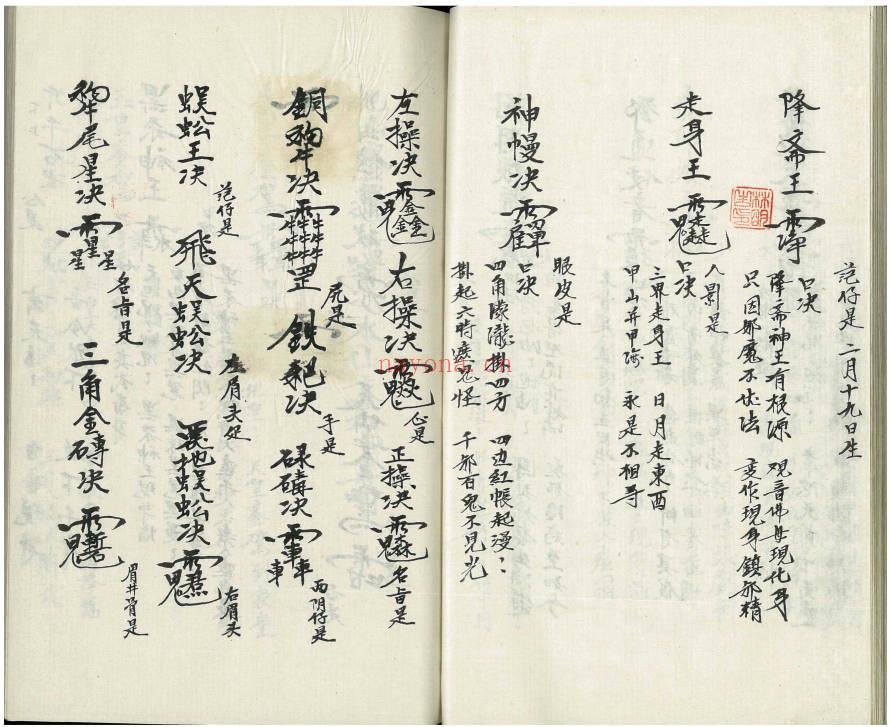 降斋王
范仔是 二月十九日生
口决
降斋神王有根源 观音佛母現化身
只因邪魔不伏法 变作現身鎮邪精
走身王
人影是
口决
三界走身王 日月走東西
甲山并甲 永是不相寻
神幔决
眼皮是
口决
四角朦朧掛四方 四边红帳起漫:
掛起六時 鬼怪 千邪百鬼不見光
左操决 右操决 心是 正操决 名旨是
銅 决 罡 尻是 鉄 决 手是 碌碡决 两阴仔是
蜈蚣王决 范仔是 飛天蜈蚣决 左眉头处 地蜈蚣决 右眉头
犂尾星决 名旨是 三角金磚决 眉井骨是
nayona.cn